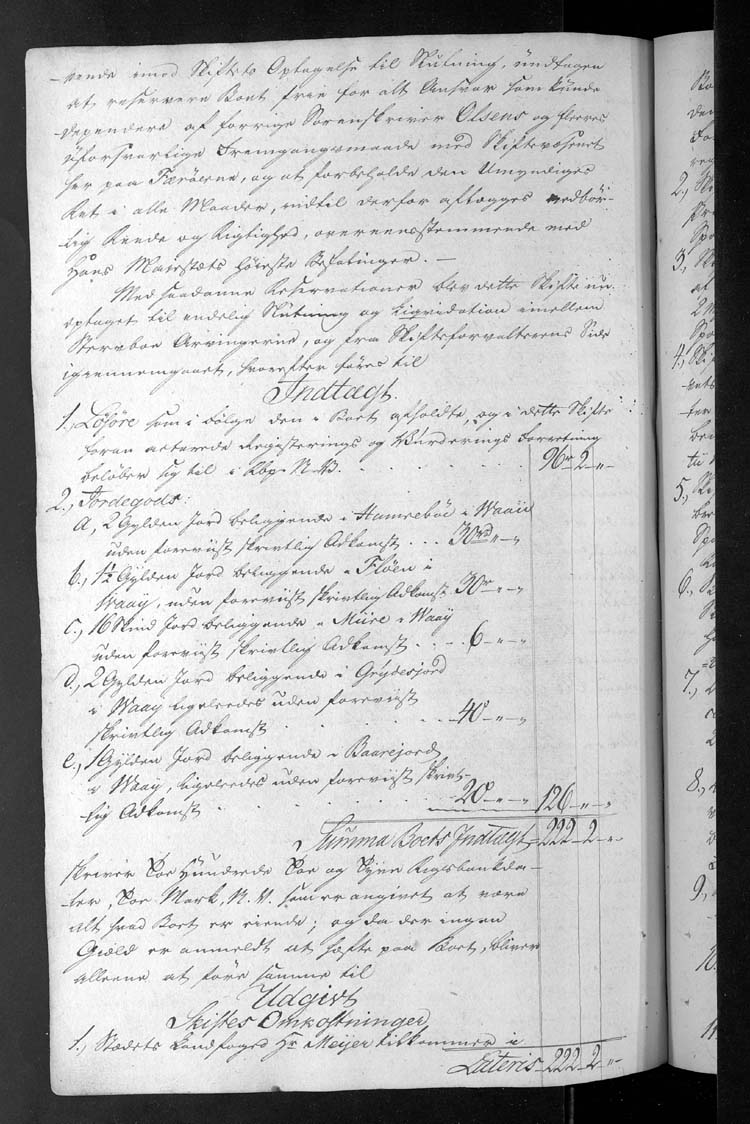 -vende imod Skiftets Optagelse til Slutning, undtagen
at reservere Boet frie for alt Ansvar som kunde
dependere af forrige Sorenskriver Olsens og fleres
uforsvarlige Fremgangsmaade med Skiftevæsenet
her paa Færöerne, og at forbeholde den Umyndiges
Ret i alle Maader, indtil derfor aflægges vedbör-
lig Reede og Rigtighed, overeensstemmende med
Hans Majestæts Höieste Befalinger. —
Med saadanne Reservationer blev dette Skifte nu
optaget til endelig Slutning og Liqvidation imellem
Stervboe Arvingerne, og fra Skifteforvalterens Side
igiennemgaaet, hvorefter föres til
Indtægt.
1., Lösöre som i Fölge den i Boet afholdte, og i dette Skifte
foran acterede Registerings og Vurderings Forretning
belöber sig til i Rbp. N. V. . . . . . 96 rd 2 - "
2., Jordegods:
a, 2 Gylden Jord beliggende i Hamreböe i Waaii
uden foreviist skrivtlig Adkomst . . . 30 rd - " - "
b., 1½ Gylden Jord beliggende i Flöen i
Waaÿ, uden foreviist skrivtlig Adkomst 30 - " - "
c., 16 Skind Jord beliggende i Miire i Waaÿ
uden foreviist skrivtlig Adkomst . . - 6 - " - "
d., 2 Gylden Jord beliggende i Grÿdesjord
i Waay ligeledes uden foreviist
skrivtlig Adkomst . . . . . - 40 - " - "
e., 1 Gylden Jord beliggende i Baarejord
i Waaÿ, ligeledes uden foreviist skrivt-
lig Adkomst . . . . . - 20 - " - " 126 - " - "
Summa Boets Indtægt - 222 - 2 - "
skriver Toe Hundrede Toe og Tyve Rigsbankda-
ler, Toe Mark, N. V. som er angivet at være
alt hvad Boet er eiende; og da der ingen
Gield er anmeldt at hæfte paa Boet, bliver
alleene at före samme til
Udgivt
Skiftes Omkostninger
1., Stædets Landfoged Hr Meijer tilkommer i
Lateris - 222 - 2 - "